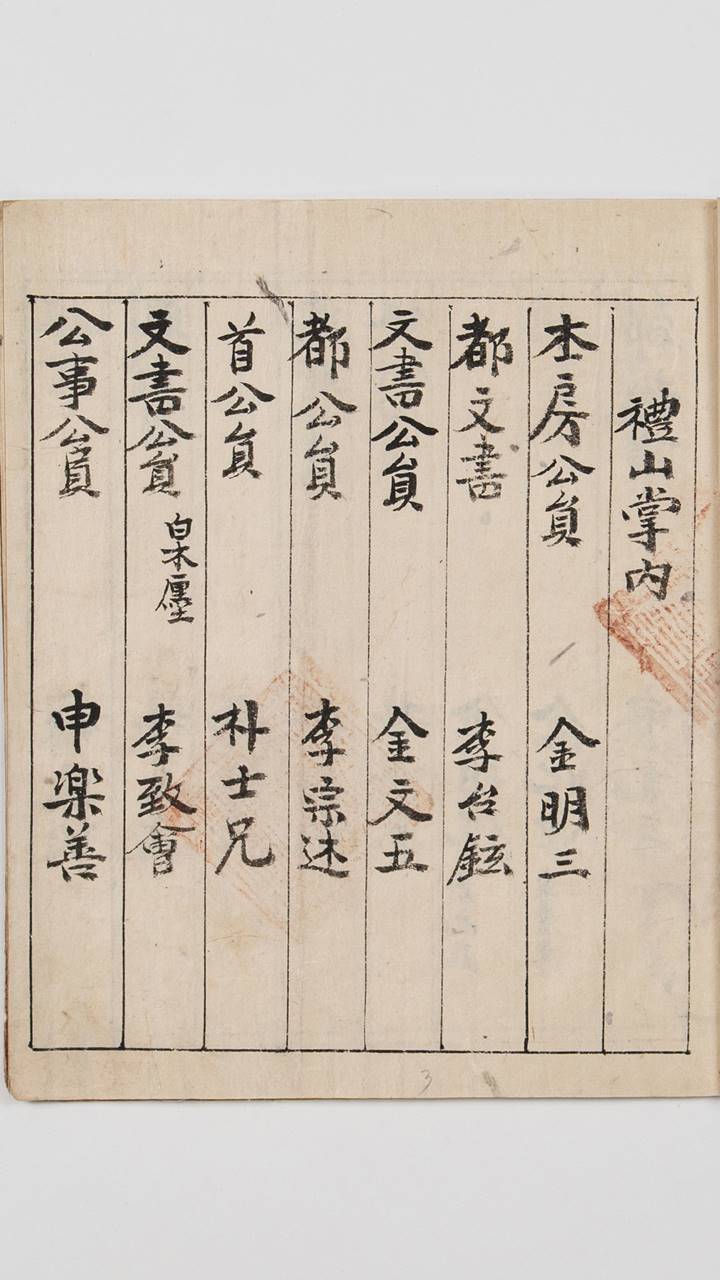 禮山掌內
本房公員 金明三
都文書 李台鉉
文書公員 金文五
都公員 李宗述
首公員 朴士兄
文書公員 白木廛 李致會
公事公員 申楽善
3